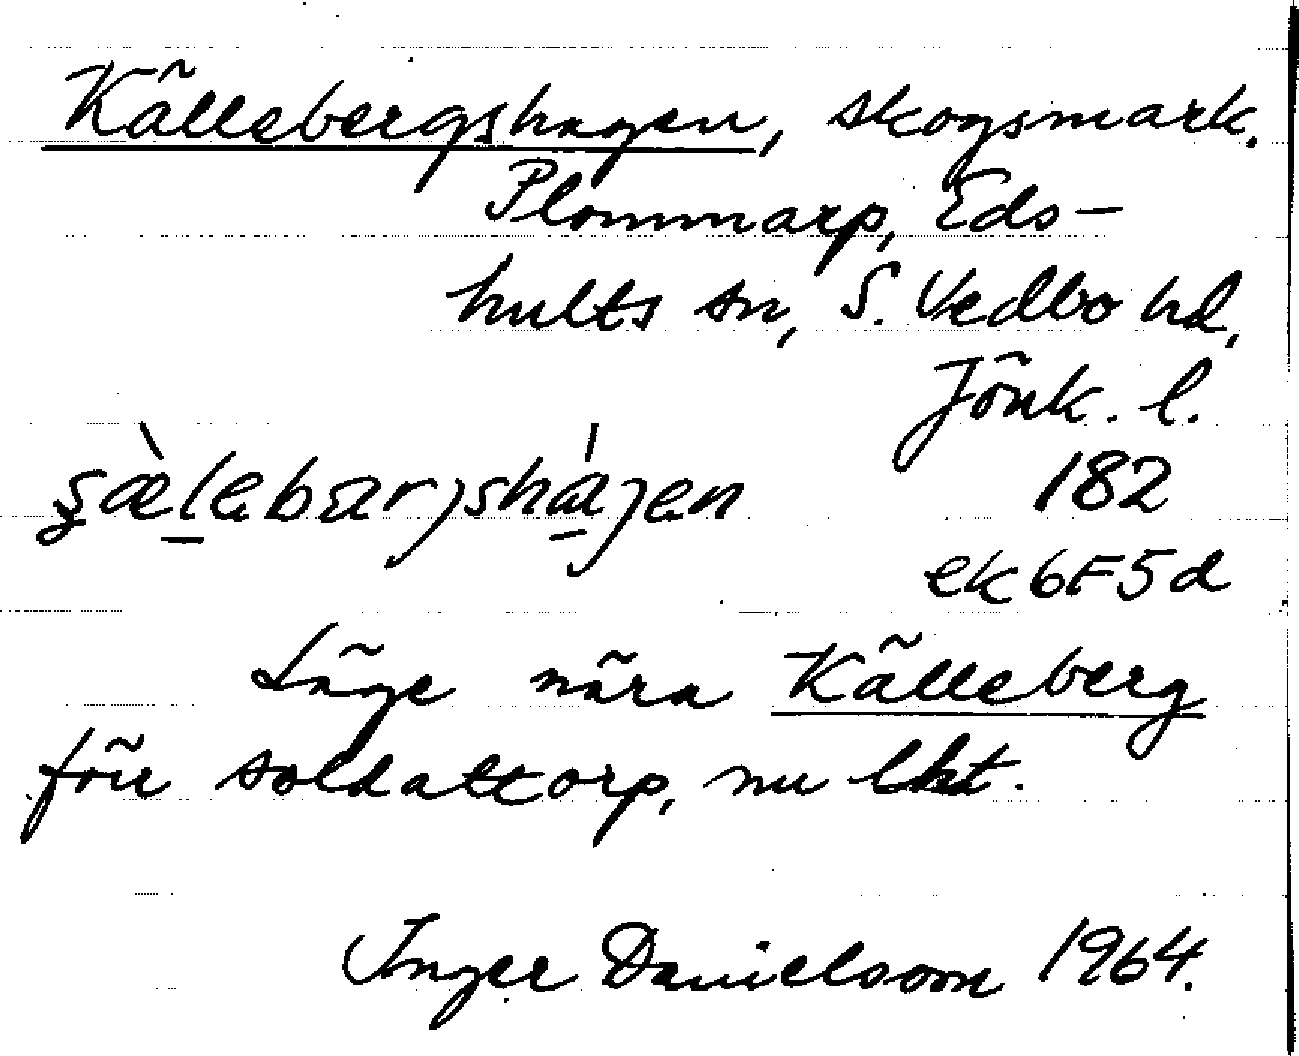 Källebergshagen, skogsmark.
Plommarp, Eds-
hults sn, S. Vedbo hd,
Jönk. l.
182
ek 6F5d
Läge nära Källeberg
förr soldattorp, nu lht.
Inger Danielsson 1964.